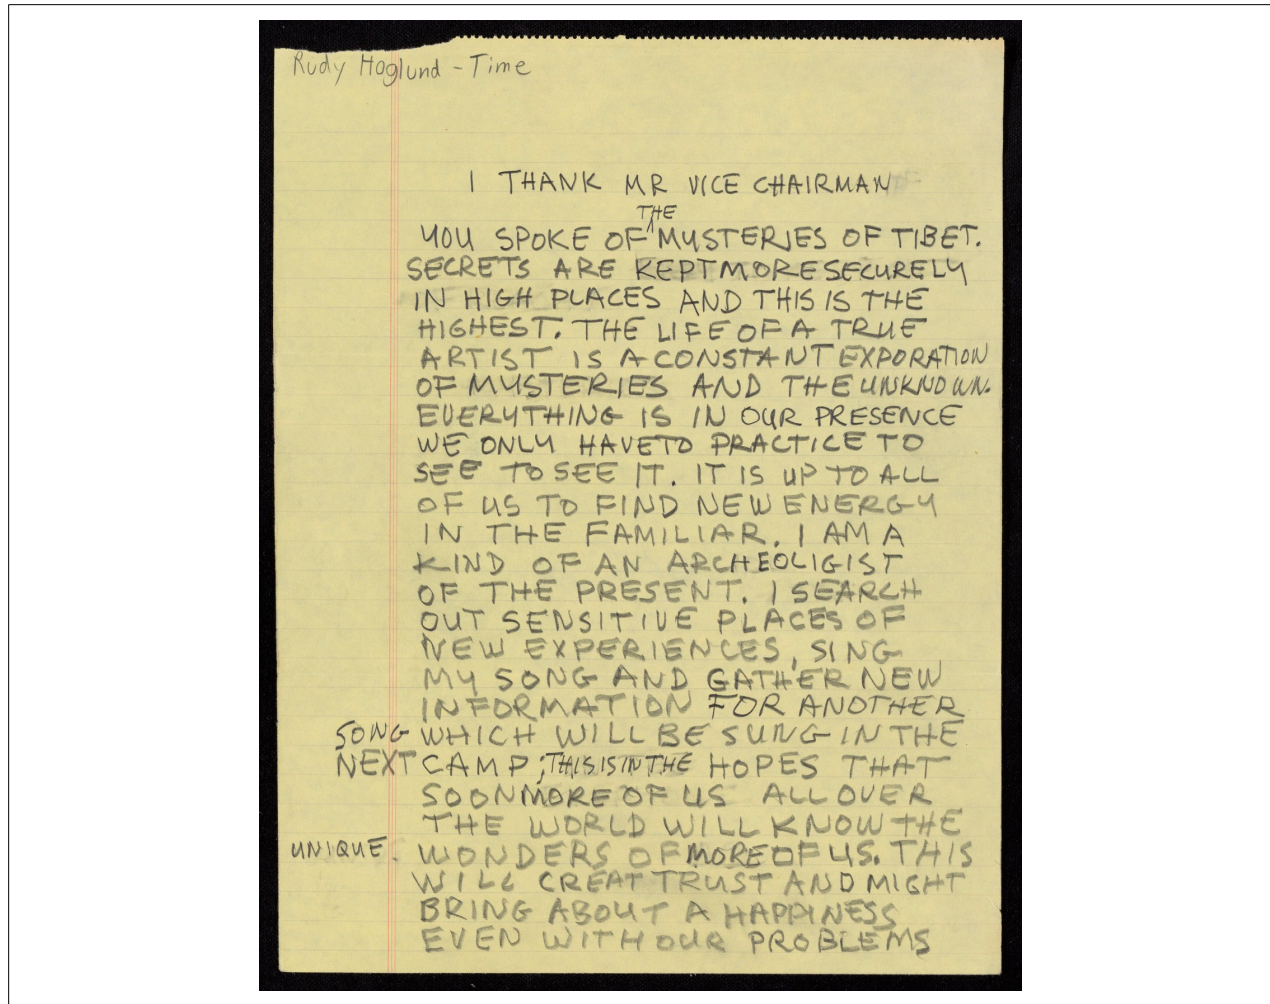 Rudy Hoglund - Time
I THANK MR VICE CHAIRMAN
THE
YOU SPOKE OF ^ MYSTERIES OF TIBET.
SECRETS ARE KEPT MORE SECURELY
IN HIGH PLACES AND THIS IS THE
HIGHEST. THE LIFE OF A TRUE
ARTIST IS A CONSTANT EXPORATION
OF MYSTERIES AND THE UNKNOWN.
EVERYTHING IS IN OUR PRESENCE
WE ONLY HAVE TO PRACTICE TO
SEE TO SEE IT. IT IS UP TO ALL
OF US TO FIND NEW ENERGY
IN THE FAMILIAR. I AM A
KIND OF AN ARCHEOLIGIST
OF THE PRESENT. I SEARCH
OUT SENSITIVE PLACES OF
NEW EXPERIENCES, SING
MY SONG AND GATHER NEW
INFORMATION FOR ANOTHER
SONG WHICH WILL BE SUNG IN THE
NEXT CAMP; THIS IS IN THE HOPES THAT
SOON MORE OF US ALL OVER
THE WORLD WILL KNOW THE
UNIQUE. WONDERS OF MORE OF US. THIS
WILL CREAT TRUST AND MIGHT
BRING ABOUT A HAPPINESS
EVEN WITH OUR PROBLEMS